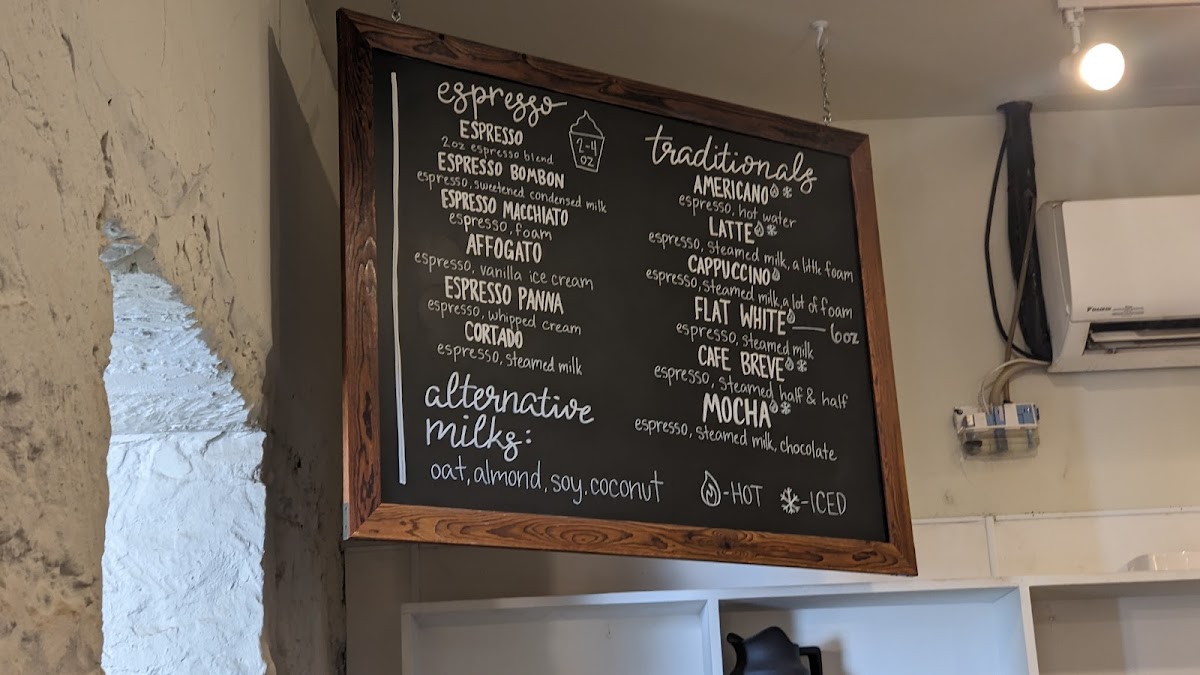 espresso
2-4
oz
ESPRESSO
2oz espresso blend
ESPRESSO BOMBON
espresso, sweetened condensed milk
ESPRESSO MACCHIATO
espresso, foam
AFFOGATO
espresso, vanilla ice cream
ESPRESSO PANNA
espresso, whipped cream
CORTADO
espresso, steamed milk
alternative
milks:
oat, almond, soy, coconut
traditionals
AMERICANO
espresso, hot water
LATTE
espresso, steamed milk, a little foam
CAPPUCCINO
espresso, steamed milk, a lot of foam
FLAT WHITE — 6oz
espresso, steamed milk
CAFE BREVE
espresso, steamed half & half
MOCHA
espresso, steamed milk, chocolate
-HOT
-ICED
DAIKIN